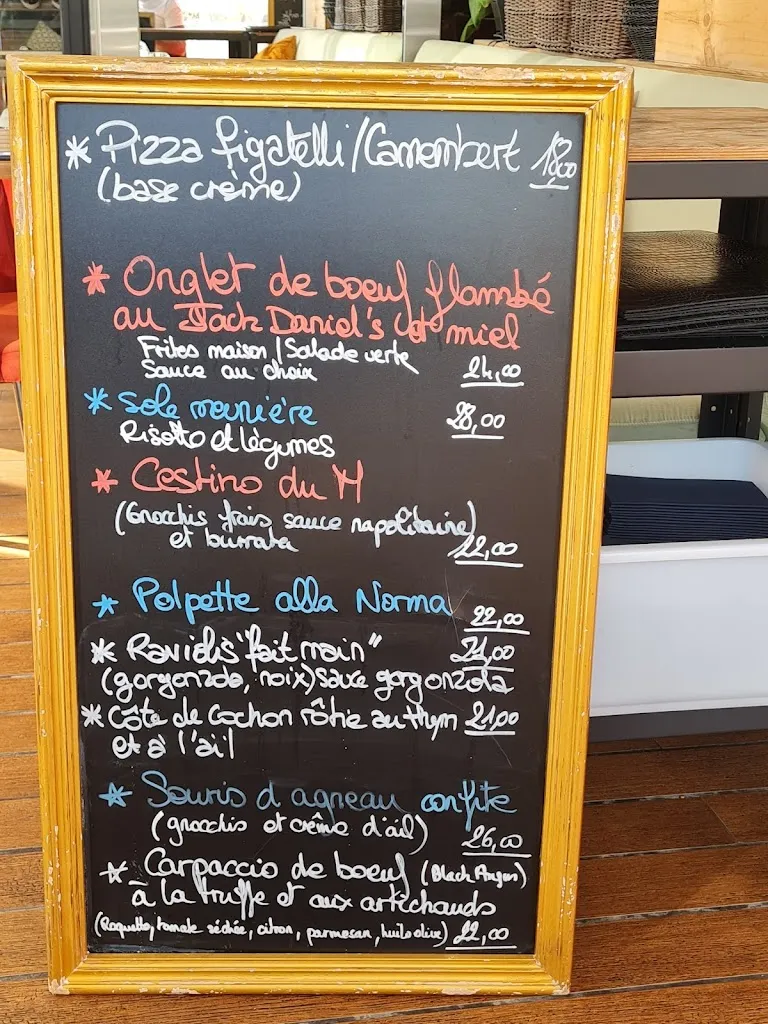 * Pizza figatelli/Camembert 18,00
(base crème)
* Onglet de boeuf flambé
au Jack Daniel's et miel
Frites maison/Salade verte
Sauce au choix 24,00
* Sole meunière 28,00
Risotto et légumes
* Cestino du M
(Gnocchis frais sauce napolitaine)
et burrata 22,00
* Polpette alla Norma 22,00
* Raviolis "fait main" 21,00
(gorgonzola, noix) sauce gorgonzola
* Côte de Cochon rôtie au thym 21,00
et à l'ail
* Souris d'agneau confite
(gnocchis et crème d'ail) 26,00
* Carpaccio de boeuf (Black Angus)
à la truffe et aux artichauds
(Roquette, tomate séchée, citron, parmesan, huile olive) 22,00